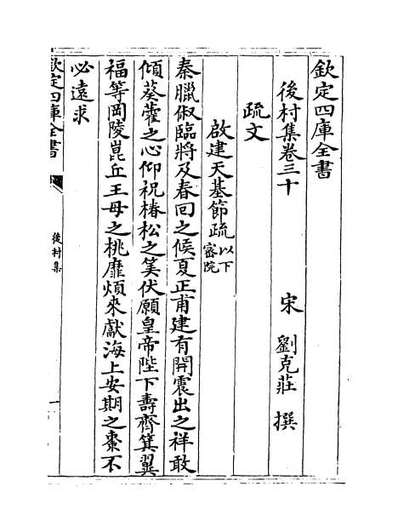 欽定四庫全書
後村集卷三十
宋 劉克莊 撰
疏文
啟建天基節疏以下密院
秦臘俶臨將及春回之候夏正甫建有開震出之祥敢
傾葵藿之心仰祝椿松之筭伏願皇帝陛下壽齊箕翼
福等岡陵崑丘王母之桃靡煩來獻海上安期之棗不
必遠求
欽定四庫全書
後村集
一